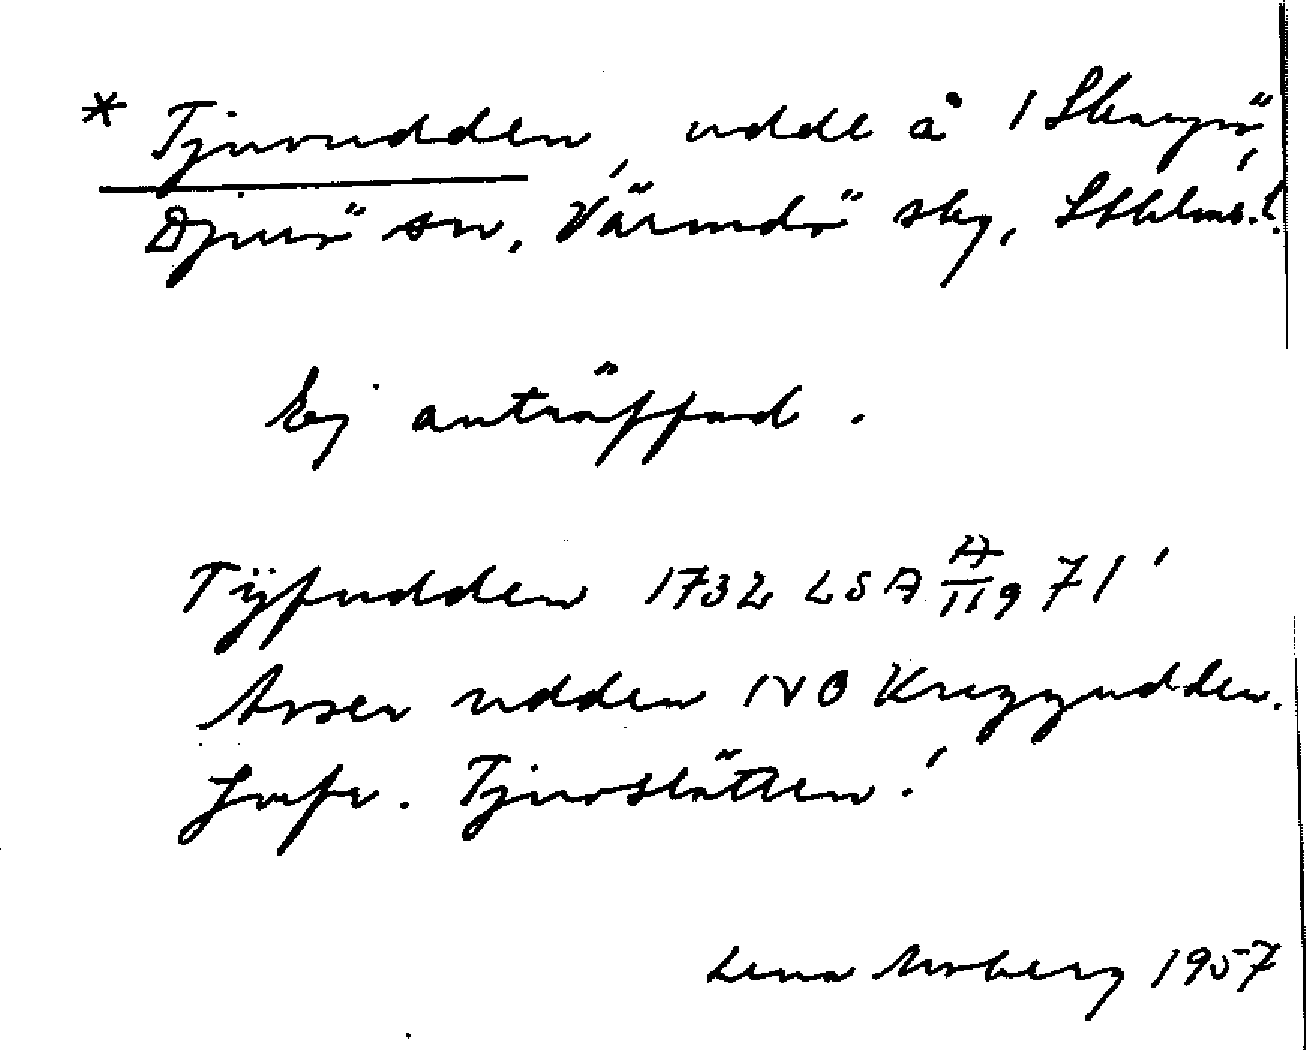 * Tjuvudden, udde å 1 Skarpö,
Djurö sn, Värmdö skg, Sthlms l.
Ej anträffad.
Tÿfudden 1732 LSA A/119 71'
Avser udden NO Kryggudden.
Jmfr. Tjuvslätten!
Lena Moberg 1957